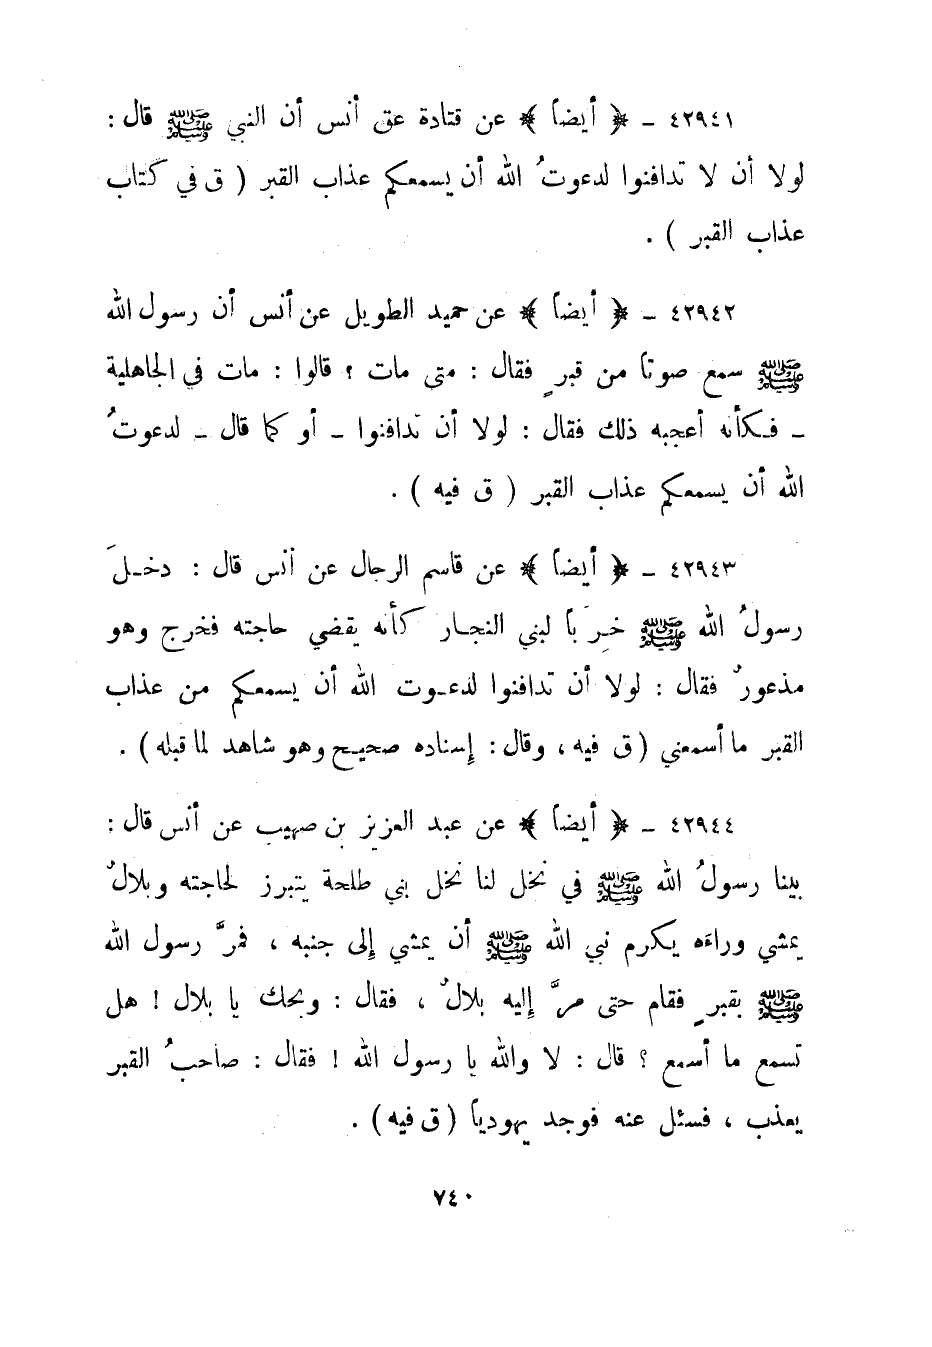 ٤٢٩٤١ ـ ﴿ أيضاً ﴾ عن قتادة عق أنس أن النبي ﷺ قال :
لولا أن لا تدافنوا لدعوتُ الله أن يسمعكم عذاب القبر ( ق في كتاب
عذاب القبر ) .
٤٢٩٤٢ ـ ﴿ أيضاً ﴾ عن حميد الطويل عن أنس أن رسول الله
ﷺ سمع صوتاً من قبرٍ فقال : متى مات ؟ قالوا : مات في الجاهلية
ـ فكأنه أعجبه ذلك فقال : لولا أن تدافنوا ـ أو كما قال ـ لدعوتُ
الله أن يسمعكم عذاب القبر ( ق فيه ) .
٤٢٩٤٣ ـ ﴿ أيضاً ﴾ عن قاسم الرحال عن أنس قال : دخلَ
رسولُ الله ﷺ خرِبَاً لبني النجار كأنه يقضي حاجته فخرج وهو
مذعورٌ فقال : لولا أن تدافنوا لدعوت الله أن يسمعكم من عذاب
القبر ما أسمعني ( ق فيه ، وقال : إسناده صحيح وهو شاهد لما قبله ) .
٤٢٩٤٤ ـ ﴿ أيضاً ﴾ عن عبد العزيز بن صهيب عن أنس قال :
بينا رسولُ الله ﷺ في نخل لنا نخل بني طلحة يتبرز لحاجته وبلالٌ
يمشي وراءه يكرم نبي الله ﷺ أن يمشي إلى جنبه ، فمرَّ رسول الله
ﷺ بقبرٍ فقام حتى مرَّ إليه بلالٌ ، فقال : ويحك يا بلال ! هل
تسمع ما أسمع ؟ قال : لا والله يا رسول الله ! فقال : صاحبُ القبر
يعذب ، فسئل عنه فوجد يهودياً ( ق فيه ) .
٧٤٠